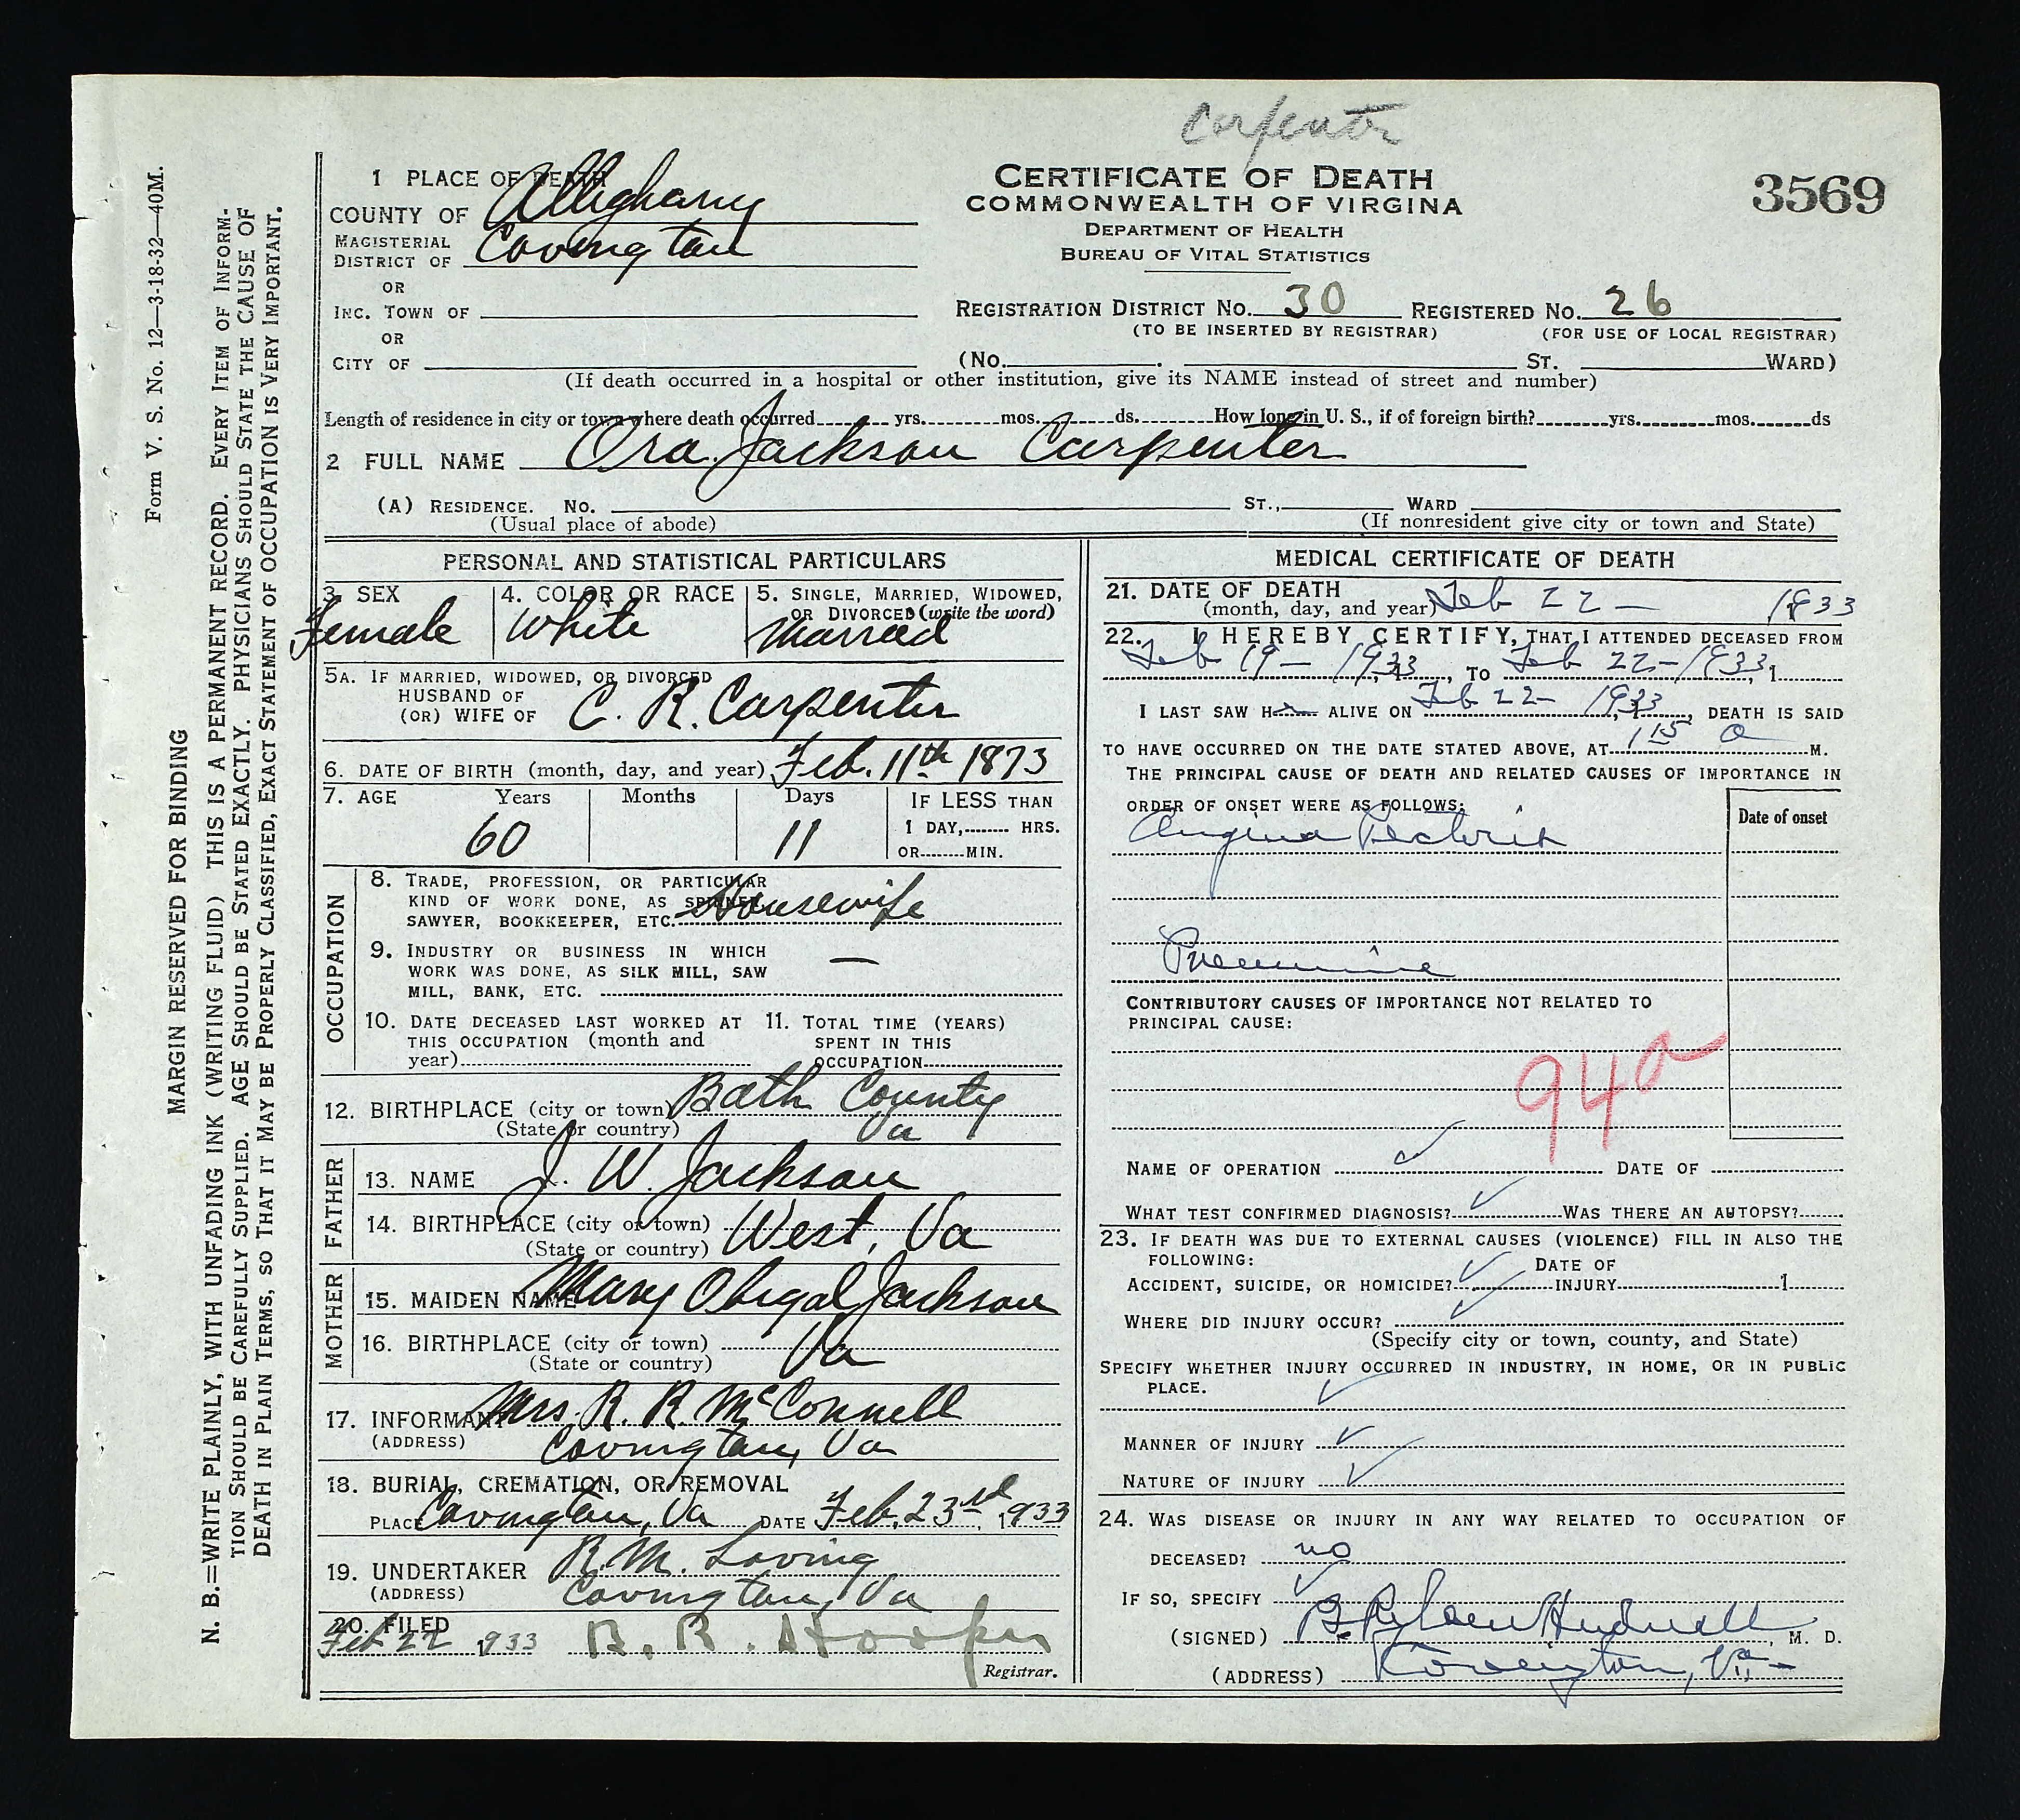 Carpenter
1 PLACE OF DEATH
COUNTY OF Alleghany
MAGISTERIAL DISTRICT OF Covington
OR
INC. TOWN OF
OR
CITY OF
CERTIFICATE OF DEATH
COMMONWEALTH OF VIRGINA
DEPARTMENT OF HEALTH
BUREAU OF VITAL STATISTICS
3569
REGISTRATION DISTRICT NO. 30 REGISTERED NO. 26
(TO BE INSERTED BY REGISTRAR) (FOR USE OF LOCAL REGISTRAR)
(NO. ST. WARD)
(If death occurred in a hospital or other institution, give its NAME instead of street and number)
Length of residence in city or town where death occurred yrs. mos. ds. How long in U. S., if of foreign birth? yrs. mos. ds
2 FULL NAME Ora Jackson Carpenter
(A) RESIDENCE. NO. ST., WARD
(Usual place of abode) (If nonresident give city or town and State)
PERSONAL AND STATISTICAL PARTICULARS
3. SEX 4. COLOR OR RACE 5. SINGLE, MARRIED, WIDOWED, OR DIVORCED (write the word)
Female White Married
5A. IF MARRIED, WIDOWED, OR DIVORCED
HUSBAND OF
(OR) WIFE OF C. R. Carpenter
6. DATE OF BIRTH (month, day, and year) Feb. 11th 1873
7. AGE Years Months Days IF LESS THAN
1 DAY, HRS.
OR MIN.
60 11
OCCUPATION
8. TRADE, PROFESSION, OR PARTICULAR
KIND OF WORK DONE, AS SPINNER,
SAWYER, BOOKKEEPER, ETC. Housewife
9. INDUSTRY OR BUSINESS IN WHICH
WORK WAS DONE, AS SILK MILL, SAW
MILL, BANK, ETC. —
10. DATE DECEASED LAST WORKED AT
THIS OCCUPATION (month and
year)
11. TOTAL TIME (YEARS)
SPENT IN THIS
OCCUPATION
12. BIRTHPLACE (city or town) Bath County
(State or country) Va
FATHER
13. NAME J. W. Jackson
14. BIRTHPLACE (city or town) West, Va
(State or country)
MOTHER
15. MAIDEN NAME Mary Obigal Jackson
16. BIRTHPLACE (city or town)
(State or country) Va
17. INFORMANT Mrs. R. R. McConnell
(ADDRESS) Covington, Va
18. BURIAL, CREMATION, OR REMOVAL
PLACE Covington, Va DATE Feb. 23rd, 1933
19. UNDERTAKER R. M. Loving
(ADDRESS) Covington, Va
20. FILED
Feb 22 1933 R. R. Hooper
Registrar.
MEDICAL CERTIFICATE OF DEATH
21. DATE OF DEATH
(month, day, and year) Feb 22 — 1933
22. I HEREBY CERTIFY, THAT I ATTENDED DECEASED FROM
Feb 19 — 1933, TO Feb 22 — 1933, 1
I LAST SAW H ALIVE ON Feb 22 — 1933, DEATH IS SAID
TO HAVE OCCURRED ON THE DATE STATED ABOVE, AT 1 15 a M.
THE PRINCIPAL CAUSE OF DEATH AND RELATED CAUSES OF IMPORTANCE IN
ORDER OF ONSET WERE AS FOLLOWS:
Date of onset
Angina Pectoris
Pneumonia
CONTRIBUTORY CAUSES OF IMPORTANCE NOT RELATED TO
PRINCIPAL CAUSE:
94a
NAME OF OPERATION ✓ DATE OF
WHAT TEST CONFIRMED DIAGNOSIS? ✓ WAS THERE AN AUTOPSY?
23. IF DEATH WAS DUE TO EXTERNAL CAUSES (VIOLENCE) FILL IN ALSO THE
FOLLOWING:
ACCIDENT, SUICIDE, OR HOMICIDE? ✓ DATE OF INJURY 1
WHERE DID INJURY OCCUR? ✓
(Specify city or town, county, and State)
SPECIFY WHETHER INJURY OCCURRED IN INDUSTRY, IN HOME, OR IN PUBLIC
PLACE.
✓
MANNER OF INJURY ✓
NATURE OF INJURY ✓
24. WAS DISEASE OR INJURY IN ANY WAY RELATED TO OCCUPATION OF
DECEASED? no
IF SO, SPECIFY ✓
(SIGNED) Hudnall, M. D.
(ADDRESS) Covington, Va. —
Form V. S. No. 12—3-18-32—40M.
MARGIN RESERVED FOR BINDING
N. B.=WRITE PLAINLY, WITH UNFADING INK (WRITING FLUID) THIS IS A PERMANENT RECORD. EVERY ITEM OF INFORM-
TION SHOULD BE CAREFULLY SUPPLIED. AGE SHOULD BE STATED EXACTLY. PHYSICIANS SHOULD STATE THE CAUSE OF
DEATH IN PLAIN TERMS, SO THAT IT MAY BE PROPERLY CLASSIFIED, EXACT STATEMENT OF OCCUPATION IS VERY IMPORTANT.